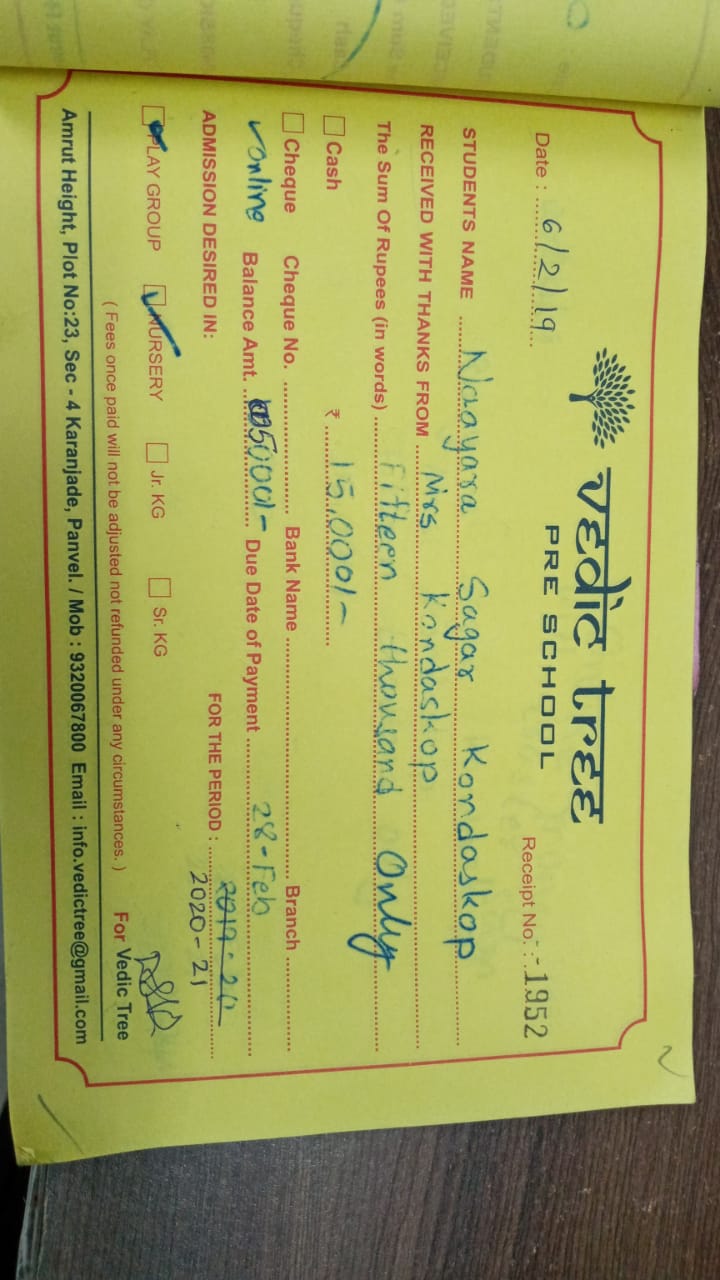 vedic tree
PRE SCHOOL
Date : 6/2/19 Receipt No. : - 1952
STUDENTS NAME Naayara Sagar Kondaskop
RECEIVED WITH THANKS FROM Mrs Kondaskop
The Sum Of Rupees (in words) Fifteen thousand Only
Cash ₹ 15,000/-
Cheque Cheque No. Bank Name Branch
✓online Balance Amt. 5000/- Due Date of Payment 28-Feb
ADMISSION DESIRED IN: FOR THE PERIOD : 2019-20
2020-21
PLAY GROUP ✓ NURSERY Jr. KG Sr. KG
( Fees once paid will not be adjusted not refunded under any circumstances. ) For Vedic Tree
Amrut Height, Plot No:23, Sec - 4 Karanjade, Panvel. / Mob : 9320067800 Email : info.vedictree@gmail.com